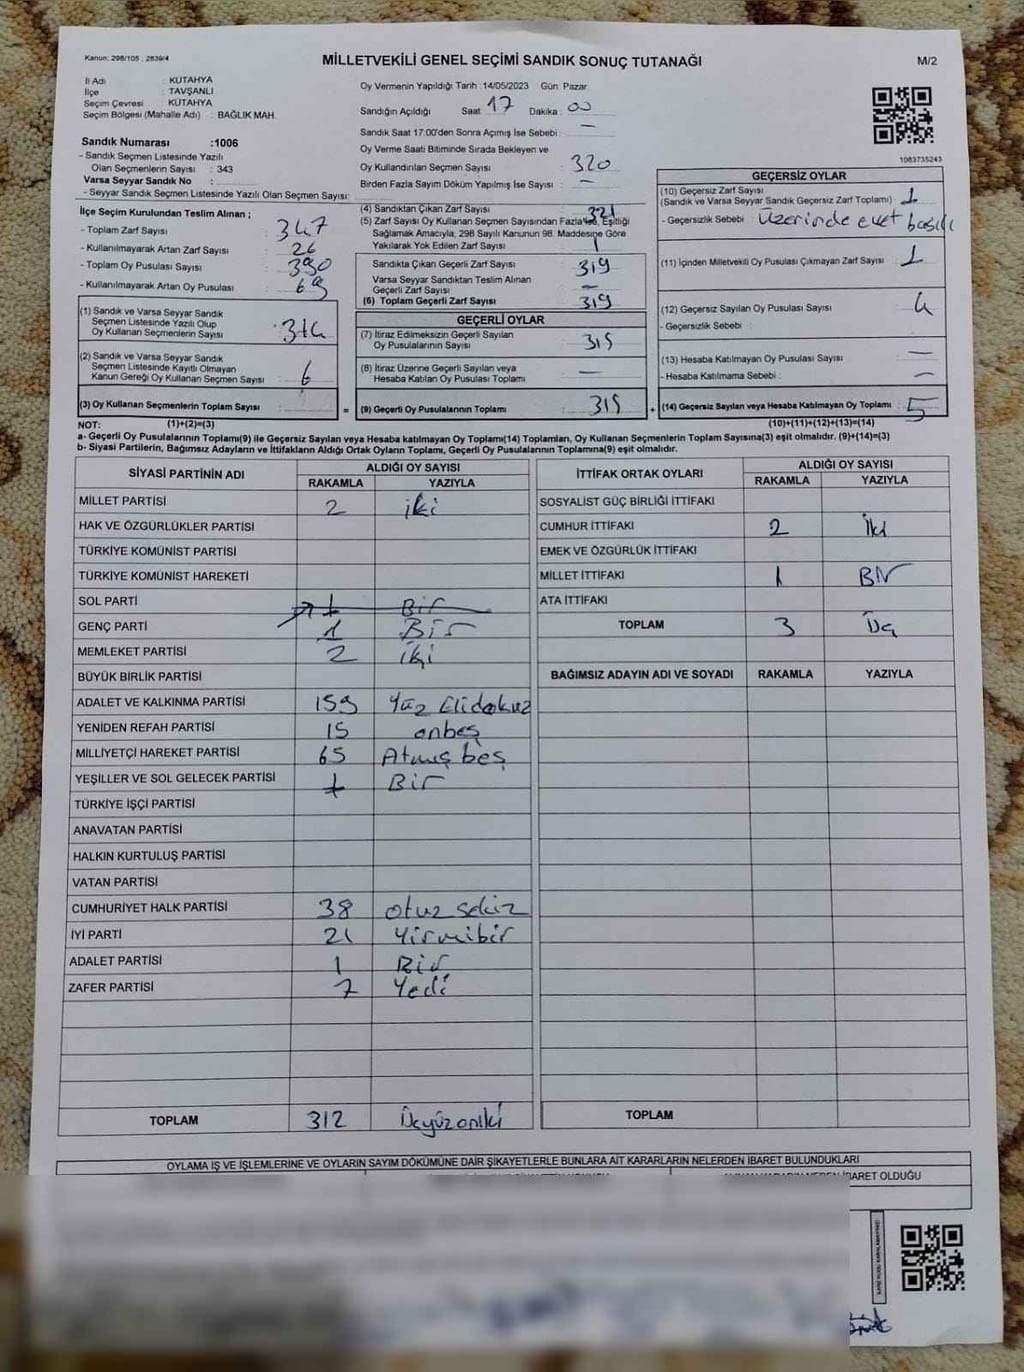 Kanun: 298/105 , 2839/4
MİLLETVEKİLİ GENEL SEÇİMİ SANDIK SONUÇ TUTANAĞI
M/2
İl Adı : KÜTAHYA
İlçe : TAVŞANLI
Seçim Çevresi : KÜTAHYA
Seçim Bölgesi (Mahalle Adı) : BAĞLIK MAH.
Sandık Numarası :1006
- Sandık Seçmen Listesinde Yazılı
Olan Seçmenlerin Sayısı : 343
Varsa Seyyar Sandık No :
- Seyyar Sandık Seçmen Listesinde Yazılı Olan Seçmen Sayısı:
Oy Vermenin Yapıldığı Tarih :14/05/2023 Gün: Pazar
Sandığın Açıldığı Saat 17 Dakika : 00
Sandık Saat 17:00'den Sonra Açımış İse Sebebi : —
Oy Verme Saati Bitiminde Sırada Bekleyen ve
Oy Kullandırılan Seçmen Sayısı : 320
Birden Fazla Sayım Döküm Yapılmış İse Sayısı : —
1083735243
İlçe Seçim Kurulundan Teslim Alınan ;
- Toplam Zarf Sayısı : 347
- Kullanılmayarak Artan Zarf Sayısı : 26
- Toplam Oy Pusulası Sayısı : 390
- Kullanılmayarak Artan Oy Pusulası : 69
(1) Sandık ve Varsa Seyyar Sandık
Seçmen Listesinde Yazılı Olup
Oy Kullanan Seçmenlerin Sayısı : 314
(2) Sandık ve Varsa Seyyar Sandık
Seçmen Listesinde Kayıtlı Olmayan
Kanun Gereği Oy Kullanan Seçmen Sayısı : 6
(3) Oy Kullanan Seçmenlerin Toplam Sayısı :
(4) Sandıktan Çıkan Zarf Sayısı : 321
(5) Zarf Sayısı Oy Kullanan Seçmen Sayısından Fazla ise, Eşitliği
Sağlamak Amacıyla, 298 Sayılı Kanunun 98. Maddesine Göre
Yakılarak Yok Edilen Zarf Sayısı : 1
Sandıkta Çıkan Geçerli Zarf Sayısı : 319
Varsa Seyyar Sandıktan Teslim Alınan
Geçerli Zarf Sayısı : —
(6) Toplam Geçerli Zarf Sayısı : 319
GEÇERLİ OYLAR
(7) İtiraz Edilmeksizin Geçerli Sayılan
Oy Pusulalarının Sayısı : 315
(8) İtiraz Üzerine Geçerli Sayılan veya
Hesaba Katılan Oy Pusulası Toplamı : —
= (9) Geçerli Oy Pusulalarının Toplamı : 315
GEÇERSİZ OYLAR
(10) Geçersiz Zarf Sayısı
(Sandık ve Varsa Seyyar Sandık Geçersiz Zarf Toplamı) : 1
- Geçersizlik Sebebi : Üzerinde evet basılı
(11) İçinden Milletvekili Oy Pusulası Çıkmayan Zarf Sayısı : 1
(12) Geçersiz Sayılan Oy Pusulası Sayısı : 4
- Geçersizlik Sebebi :
(13) Hesaba Katılmayan Oy Pusulası Sayısı : —
- Hesaba Katılmama Sebebi : —
+ (14) Geçersiz Sayılan veya Hesaba Katılmayan Oy Toplamı : 5
NOT: (1)+(2)=(3)
(10)+(11)+(12)+(13)=(14)
a- Geçerli Oy Pusulalarının Toplamı(9) ile Geçersiz Sayılan veya Hesaba katılmayan Oy Toplamı(14) Toplamları, Oy Kullanan Seçmenlerin Toplam Sayısına(3) eşit olmalıdır. (9)+(14)=(3)
b- Siyasi Partilerin, Bağımsız Adayların ve İttifakların Aldığı Ortak Oyların Toplamı, Geçerli Oy Pusulalarının Toplamına(9) eşit olmalıdır.
SİYASİ PARTİNİN ADI ALDIĞI OY SAYISI
RAKAMLA YAZIYLA
MİLLET PARTİSİ 2 iki
HAK VE ÖZGÜRLÜKLER PARTİSİ
TÜRKİYE KOMÜNİST PARTİSİ
TÜRKİYE KOMÜNİST HAREKETİ
SOL PARTİ 1 Bir
GENÇ PARTİ 1 Bir
MEMLEKET PARTİSİ 2 iki
BÜYÜK BİRLİK PARTİSİ
ADALET VE KALKINMA PARTİSİ 159 Yüz Ellidokuz
YENİDEN REFAH PARTİSİ 15 onbeş
MİLLİYETÇİ HAREKET PARTİSİ 65 Atmış beş
YEŞİLLER VE SOL GELECEK PARTİSİ 1 Bir
TÜRKİYE İŞÇİ PARTİSİ
ANAVATAN PARTİSİ
HALKIN KURTULUŞ PARTİSİ
VATAN PARTİSİ
CUMHURİYET HALK PARTİSİ 38 otuz sekiz
İYİ PARTİ 21 Yirmibir
ADALET PARTİSİ 1 Bir
ZAFER PARTİSİ 7 Yedi
TOPLAM 312 Üçyüzoniki
İTTİFAK ORTAK OYLARI ALDIĞI OY SAYISI
RAKAMLA YAZIYLA
SOSYALİST GÜÇ BİRLİĞİ İTTİFAKI
CUMHUR İTTİFAKI 2 İki
EMEK VE ÖZGÜRLÜK İTTİFAKI
MİLLET İTTİFAKI 1 Bir
ATA İTTİFAKI
TOPLAM 3 Üç
BAĞIMSIZ ADAYIN ADI VE SOYADI RAKAMLA YAZIYLA
TOPLAM
OYLAMA İŞ VE İŞLEMLERİNE VE OYLARIN SAYIM DÖKÜMÜNE DAİR ŞİKAYETLERLE BUNLARA AİT KARARLARIN NELERDEN İBARET BULUNDUKLARI
İBARET OLDUĞU